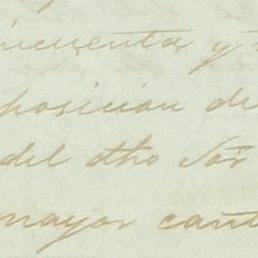 incuenta y
posicion de
del dho Sór
mayor cant